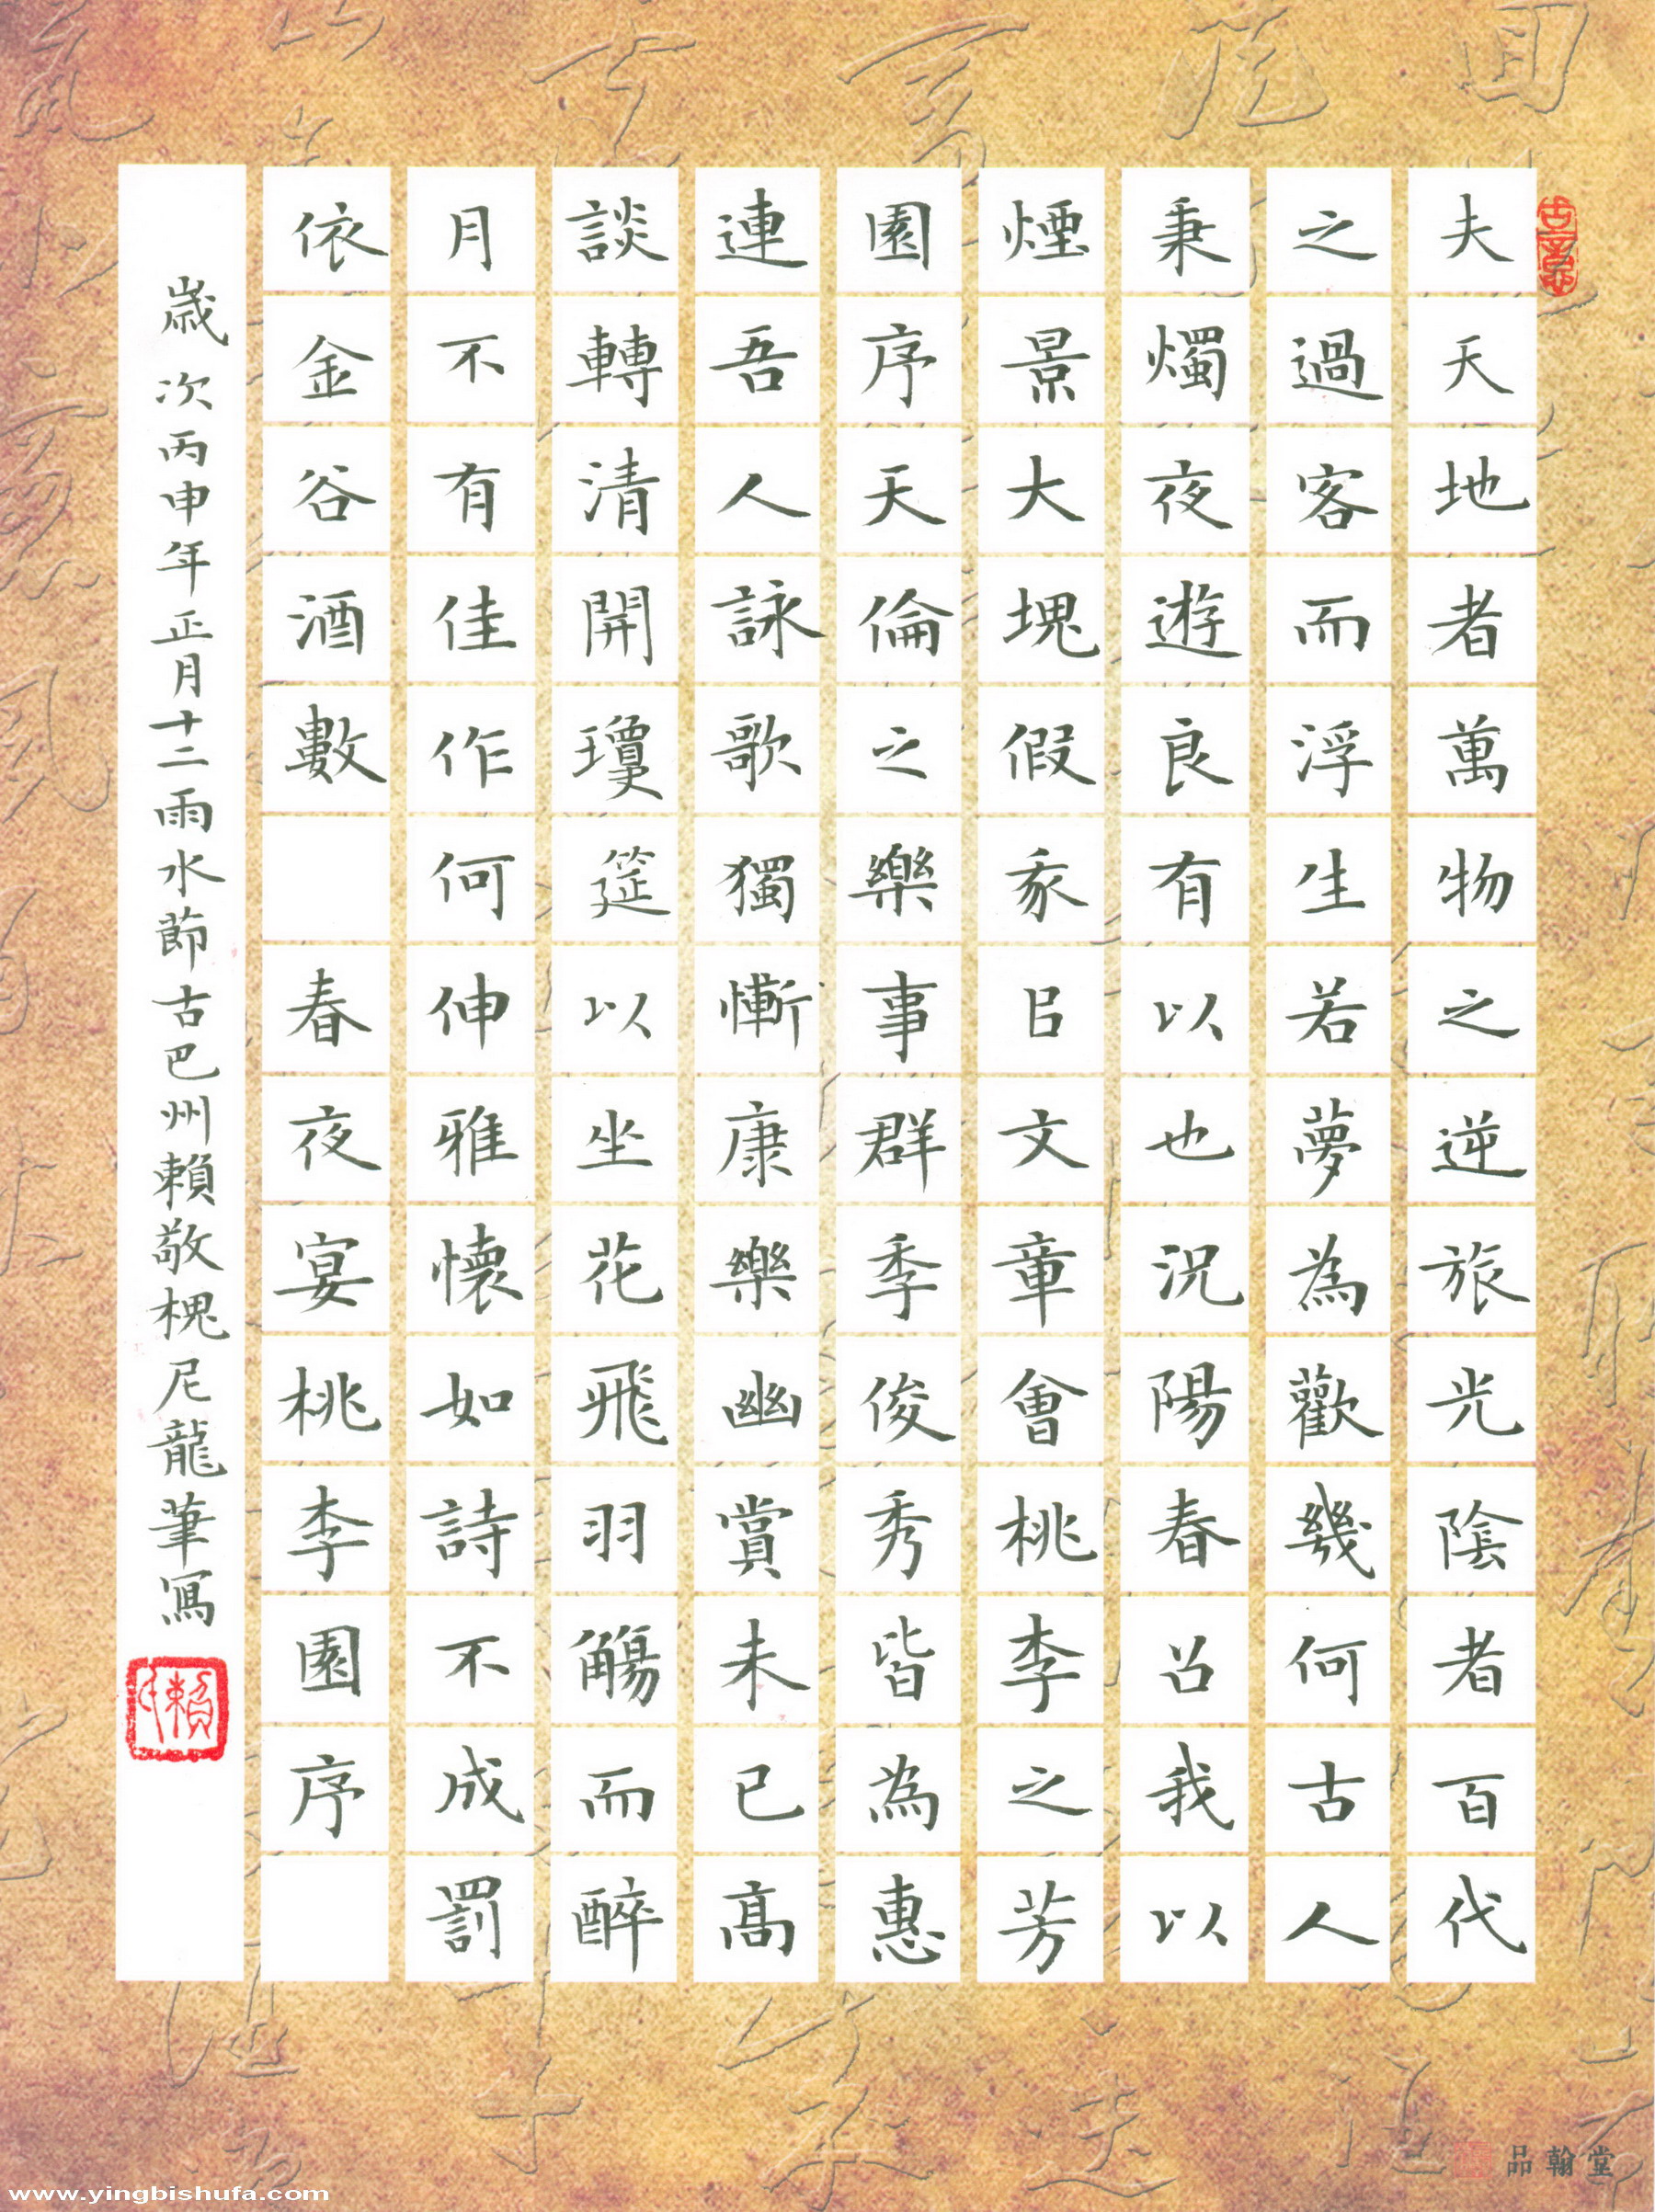 古意
夫天地者萬物之逆旅光陰者百代
之過客而浮生若夢為歡幾何古人
秉燭夜遊良有以也況陽春召我以
煙景大塊假我㠯文章會桃李之芳
園序天倫之樂事群季俊秀皆為惠
連吾人詠歌獨慚康樂幽賞未已髙
談轉清開瓊筵以坐花飛羽觴而醉
月不有佳作何伸雅懷如詩不成罰
依金谷酒數 春夜宴桃李園序
歲次丙申年正月十二雨水節古巴州賴敬槐尼龍筆寫
賴
品翰堂
www.yingbishufa.com